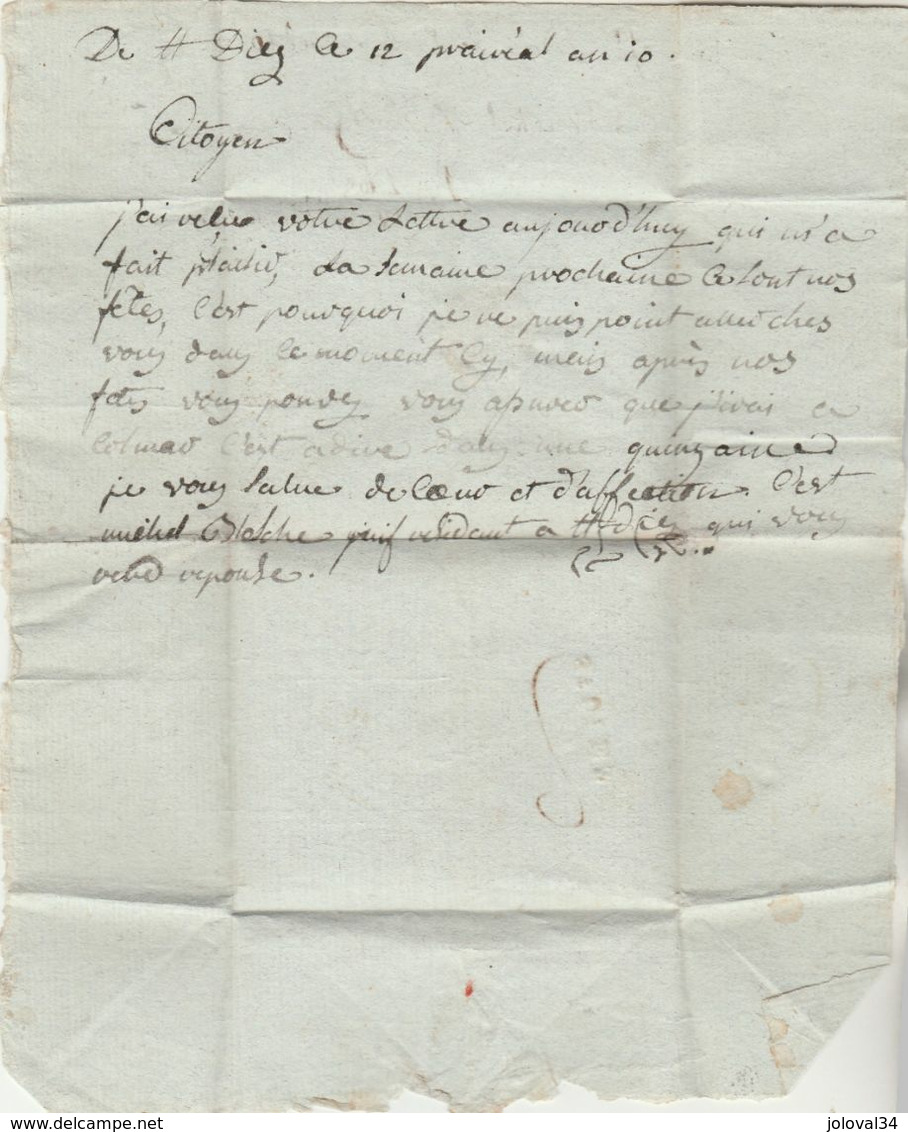 De St Diey Ce 12 prairéal an 10.
Citoyen
j'ai reçue votre Lettre aujourd'huy qui m'a
fait plaisir, La semaine prochaine Ce sont nos
fêtes, C'est pourquoi je ne puis point aller chés
vous dans le moment Cy, mais après nos
fêtes vous pouvez vous assurer que j'irai a
Colmar C'est a dire dans une quinzaine
je vous salue de Coeur et d'affection. C'est
michel Bloche juif résidant a St diey qui vous
rend reponse.
delcampe.net
joloval34